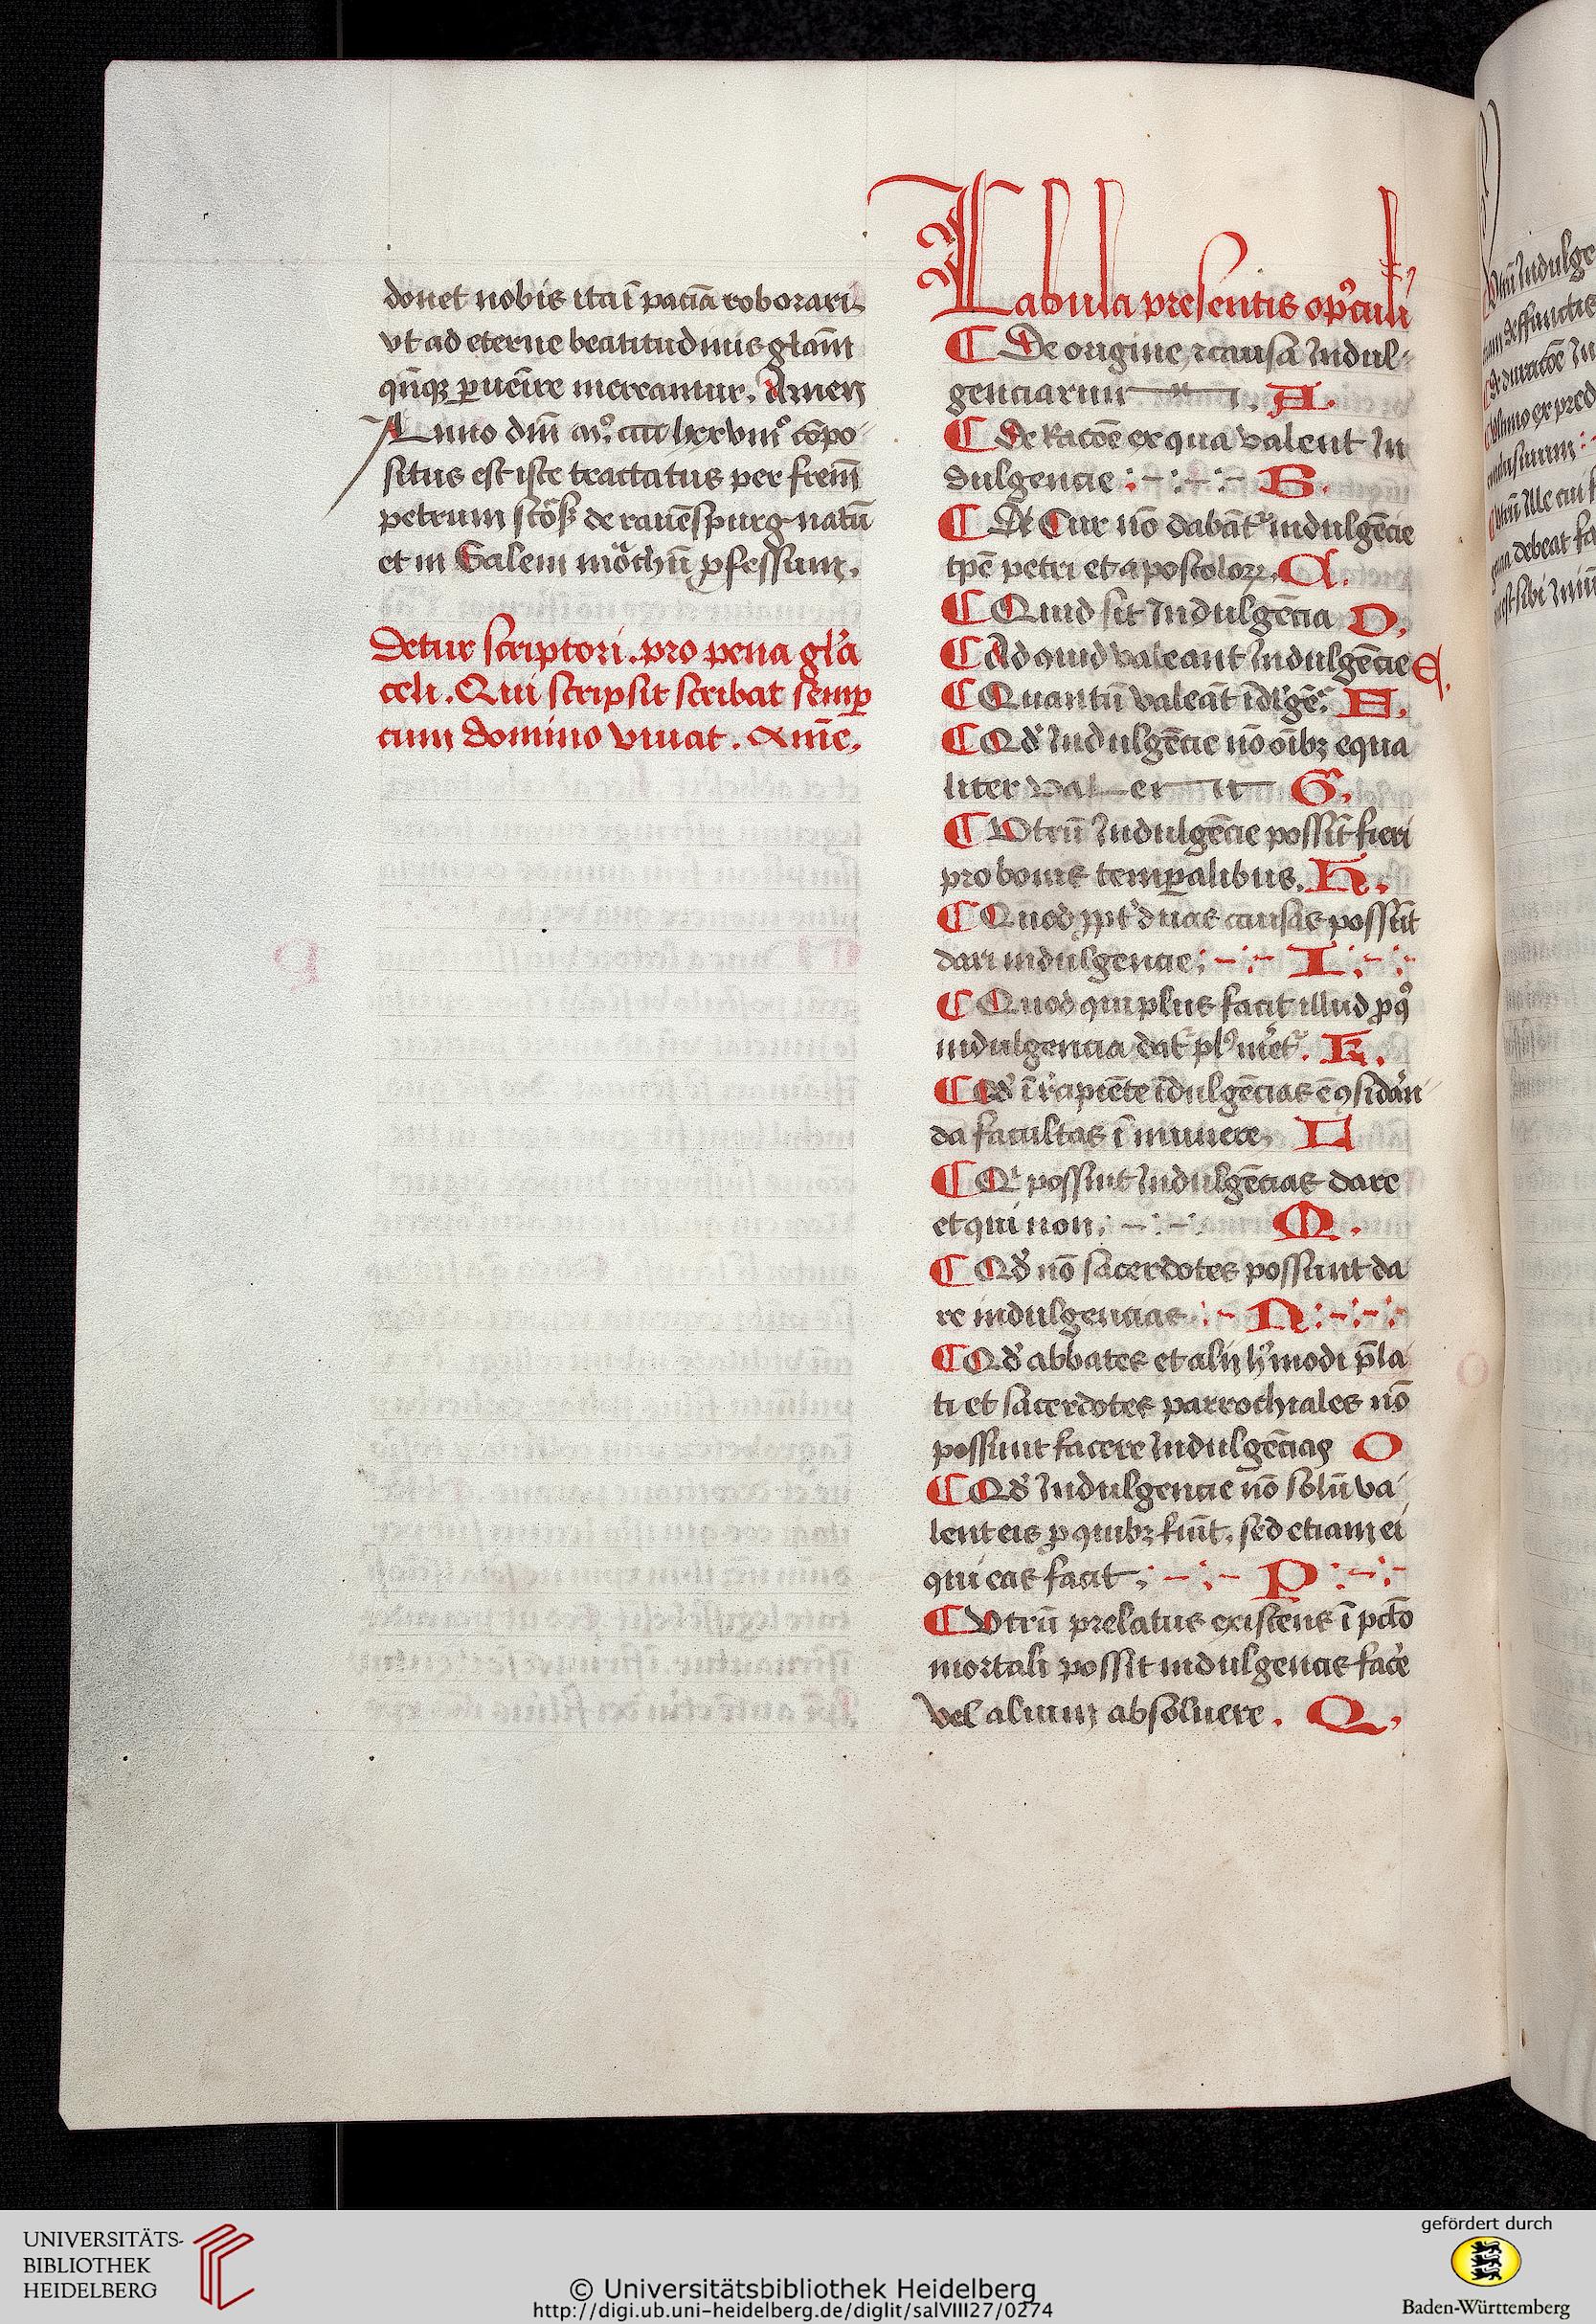 donet nobis ita ī paciā roborari
vt ad eterne beatitudinis gl̄am
qn̄qꝫ ꝑuēire mereamur. Amen
Anno dn̄i mº cccc lxxviijº cōpo
situs est iste tractatus per frem̄
petrum stöß de rauēspurg natū
et in Salem mōchū ꝓfessum.
Detur scriptori pro pena gl'a
celi. Qui scripsit scribat semꝑ
cum domino viuat. Ame.
Tabula presentis op'culi
De origine ⁊ causa Indul
genciarum A.
De Racōe ex qua valent In
dulgencie B.
Cur nō dabāt' indulgēcie
tpē petri et apostoloꝝ. C.
Quid sit Indulgēcia D.
Ad quid valeant Indulgēcie E.
Quantū valeāt īdl'gē. F.
Qd' Indulgēcie nō oībꝫ equa
liter valent G.
Vtrū Indulgēcie possīt fieri
pro bonis temꝑalibus. H.
Quod ꝓpt' duas causas possūt
dari indulgencie I
Quod qui plus facit illud ꝓ qº
indulgencia dat' pl' mēt'. K.
Qd' ī r'cipiēte īdulgēcias ē ꝯsid'an
da facultas ī munere. L
Qⁱ possunt Indulgēcias dare
et qui non. M.
Qd' nō sacerdotes possunt da
re indulgencias N
Qd' abbates et alij h'modi p̄la
ti et sacerdotes parrochiales nō
possunt facere Indulgēcias O
Qd' Indulgencie nō solū va
lent eis ꝓ quibꝫ fiūt, sed etiam ei
qui eas facit. P
Vtrū prelatus existens ī pctō
mortali possit indulgencias fac'e
vel alium absoluere. Q.
UNIVERSITÄTS-
BIBLIOTHEK
HEIDELBERG
© Universitätsbibliothek Heidelberg
http://digi.ub.uni-heidelberg.de/diglit/salVIII27/0274
gefördert durch
Baden-Württemberg